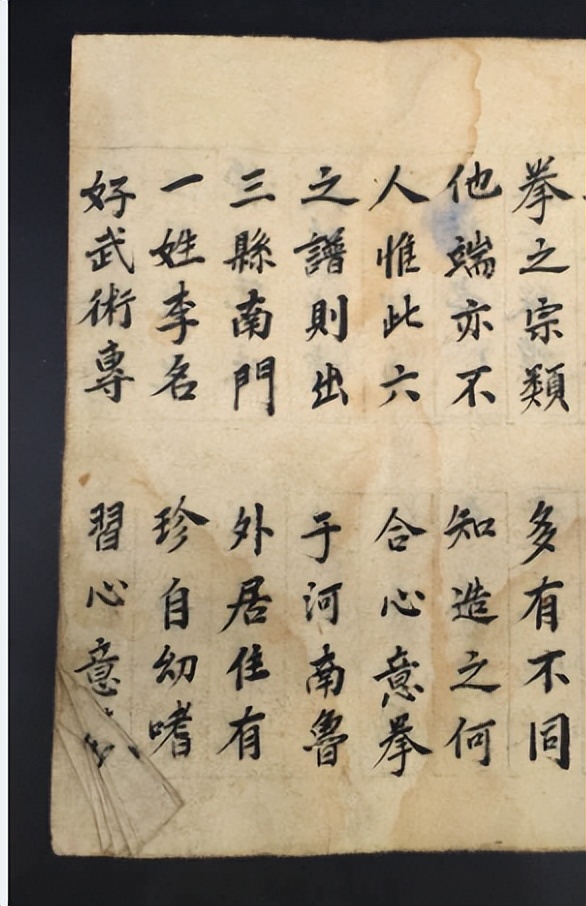 拳之宗類多有不同
他端亦不知造之何
人惟此六合心意拳
之譜則出于河南魯
三縣南門外居住有
一姓李名珍自幼嗜
好武術專習心意